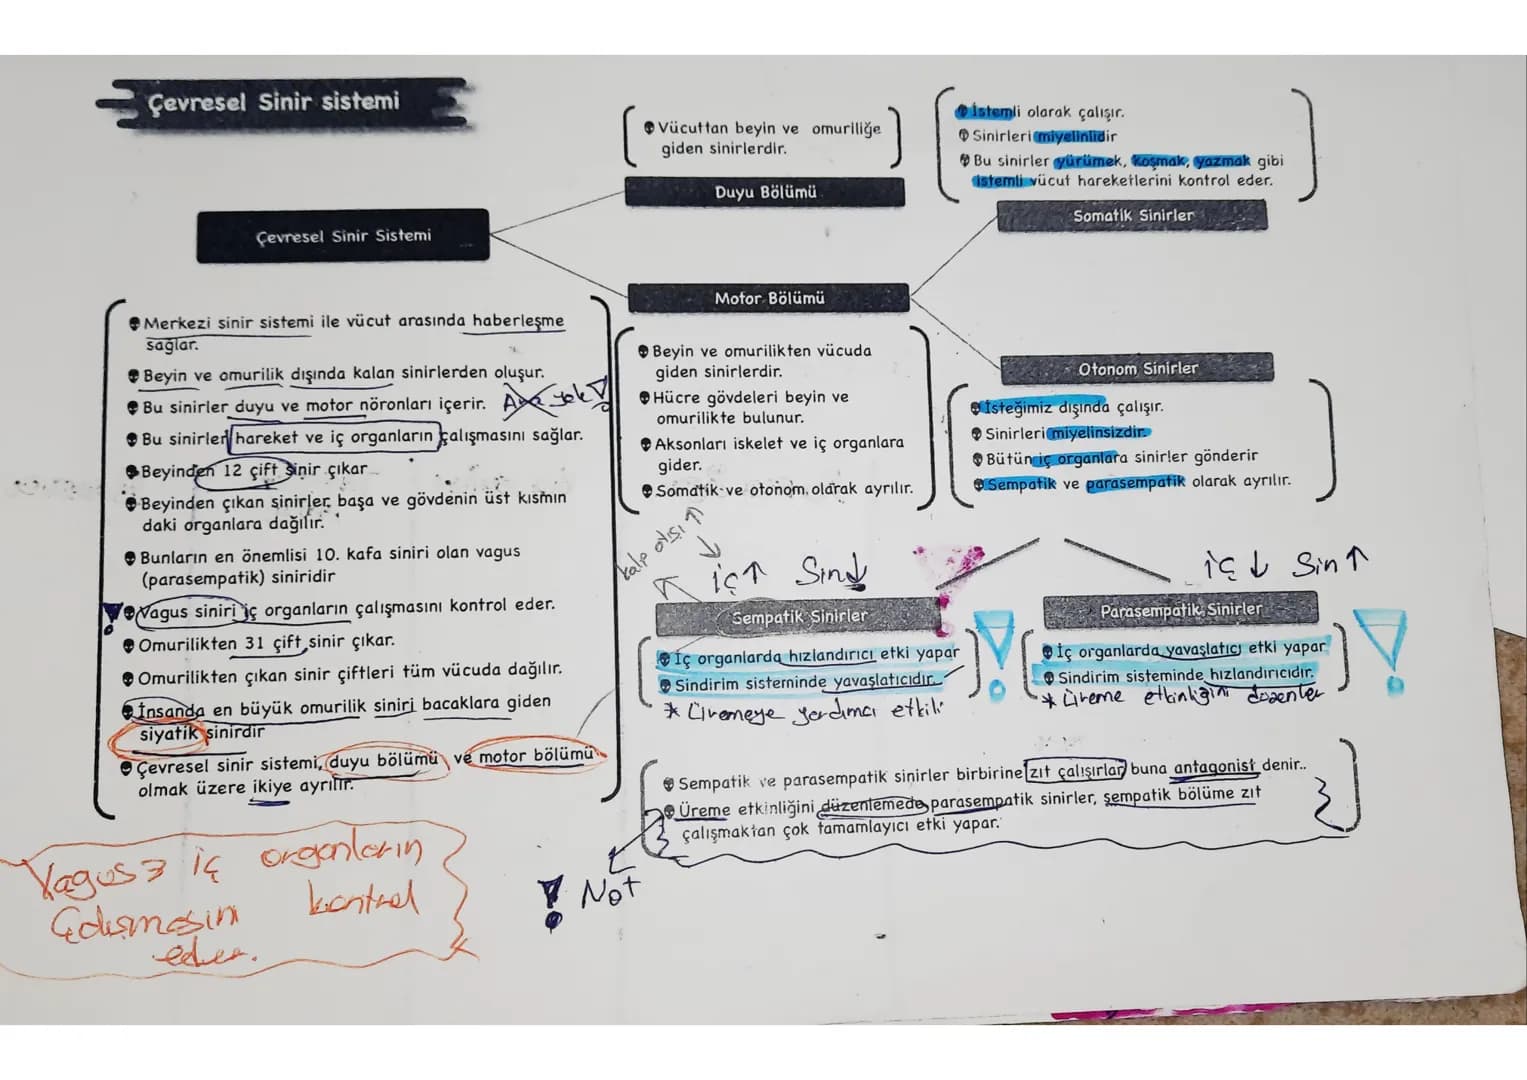 Çevresel Sinir sistemi
Vücuttan beyin ve omuriliğe
giden sinirlerdir.
Duyu Bölümü
İstemli olarak çalışır.
Sinirleri miyelinlidir
Bu sinirler yürümek, koşmak, yazmak gibi
istemli vücut hareketlerini kontrol eder.
Somatik Sinirler
Çevresel Sinir Sistemi
Motor Bölümü
Merkezi sinir sistemi ile vücut arasında haberleşme
sağlar.
Beyin ve omurilik dışında kalan sinirlerden oluşur.
Bu sinirler duyu ve motor nöronları içerir. Ara yok
Bu sinirler hareket ve iç organların çalışmasını sağlar.
Beyinden 12 çift sinir çıkar
Beyinden çıkan sinirler, başa ve gövdenin üst kısmın
daki organlara dağılır.
Bunların en önemlisi 10. kafa siniri olan vagus
(parasempatik) siniridir
Vagus siniri iç organların çalışmasını kontrol eder.
Omurilikten 31 çift sinir çıkar.
Omurilikten çıkan sinir çiftleri tüm vücuda dağılır.
İnsanda en büyük omurilik siniri bacaklara giden
siyatik sinirdir
Çevresel sinir sistemi, duyu bölümü ve motor bölümü
olmak üzere ikiye ayrılır.
Vagus iç organların
çalışmasını kontrol
eder.
Beyin ve omurilikten vücuda
giden sinirlerdir.
Hücre gövdeleri beyin ve
omurilikte bulunur.
Aksonları iskelet ve iç organlara
gider.
Somatik ve otonom olarak ayrılır.
Otonom Sinirler
İsteğimiz dışında çalışır.
Sinirleri miyelinsizdir.
Bütün iç organlara sinirler gönderir
Sempatik ve parasempatik olarak ayrılır.
kalp atışı ↑
iç↑ Sin↓
Sempatik Sinirler
İç organlarda hızlandırıcı etki yapar
Sindirim sisteminde yavaşlatıcıdır.
* Üremeye yardımcı etkili
iç↓ Sin↑
Parasempatik Sinirler
İç organlarda yavaşlatıcı etki yapar
Sindirim sisteminde hızlandırıcıdır.
* Üreme etkinliğini düzenler
Sempatik ve parasempatik sinirler birbirine zıt çalışırlar buna antagonist denir..
Üreme etkinliğini düzenlemede parasempatik sinirler, sempatik bölüme zıt
çalışmaktan çok tamamlayıcı etki yapar.
! Not